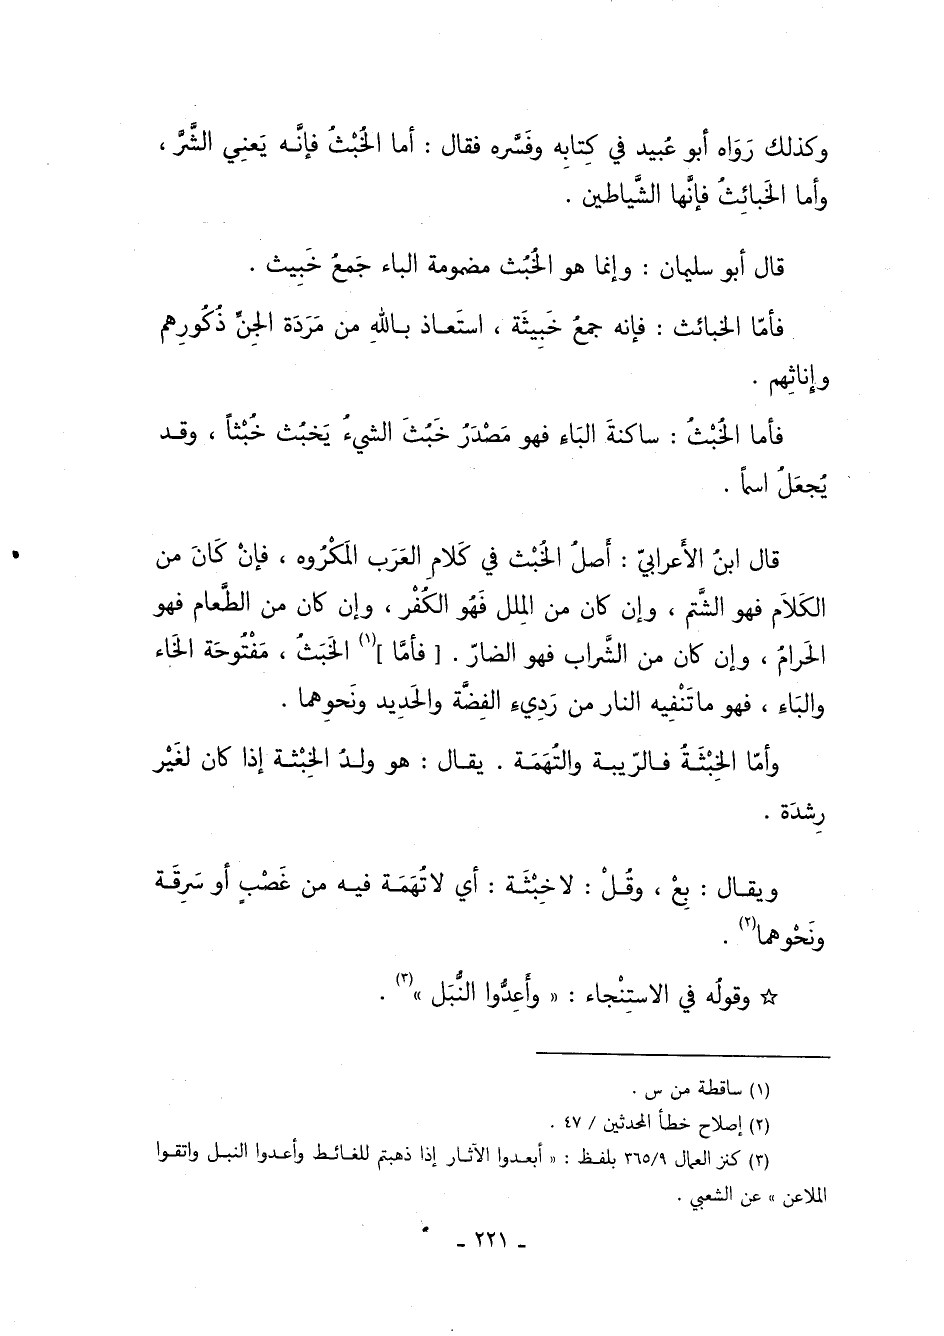 وكذلك رَوَاه أبو عُبيد في كِتابِه وفَسَّره فقال : أما الخُبْثُ فإنَّه يَعنِي الشَّرَّ ،
وأما الخَبائِثُ فإنَّها الشَّياطين .
قال أبو سليمان : وإنما هو الخُبُث مضمومة الباء جَمعُ خَبِيث .
فأمّا الخبائث : فإنه جمعُ خَبِيثَة ، استَعاذ باللهِ من مَرَدَة الجِنِّ ذُكُورِهم
وإِناثِهم .
فأما الخُبْثُ : ساكنةَ البَاءِ فهو مَصْدَرُ خَبُثَ الشيءُ يَخبُث خُبْثاً ، وقد
يُجعَلُ اسماً .
قال ابنُ الأَعرابيّ : أَصلُ الخُبْث في كَلامِ العَرَب المَكْرُوه ، فإنْ كَانَ من
الكَلاَم فهو الشَّتم ، وإن كان من المِلل فَهُو الكُفْر ، وإن كان من الطَّعام فهو
الحَرامُ ، وإن كان من الشَّراب فهو الضارّ . [ فأمَّا ](١) الخَبَثُ ، مَفْتُوحَة الخَاء
والبَاءِ ، فهو ماتَنْفِيه النار من رَدِيءِ الفِضَّة والحَدِيد ونَحوِهما .
وأمّا الخِبْثَةُ فالرّيبة والتُهَمَة . يقال : هو ولدُ الخِبْثة إذا كان لغَيْر
رِشدَة .
ويقال : بِعْ ، وقُلْ : لاخِبْثَة : أي لاتُهَمَة فيه من غَصْبٍ أو سَرِقَة
ونَحْوهما(٢) .
☆ وقولُه في الاستِنْجاء : « وأَعِدُّوا النُّبَل »(٣) .
(١) ساقطة من س .
(٢) إصلاح خطأ المحدثين / ٤٧ .
(٣) كنز العمال ٣٦٥/٩ بلفظ : « أبعدوا الآثار إذا ذهبتم للغائط وأعدوا النبل واتقوا
الملاعن » عن الشعبي .
- ٢٢١ -